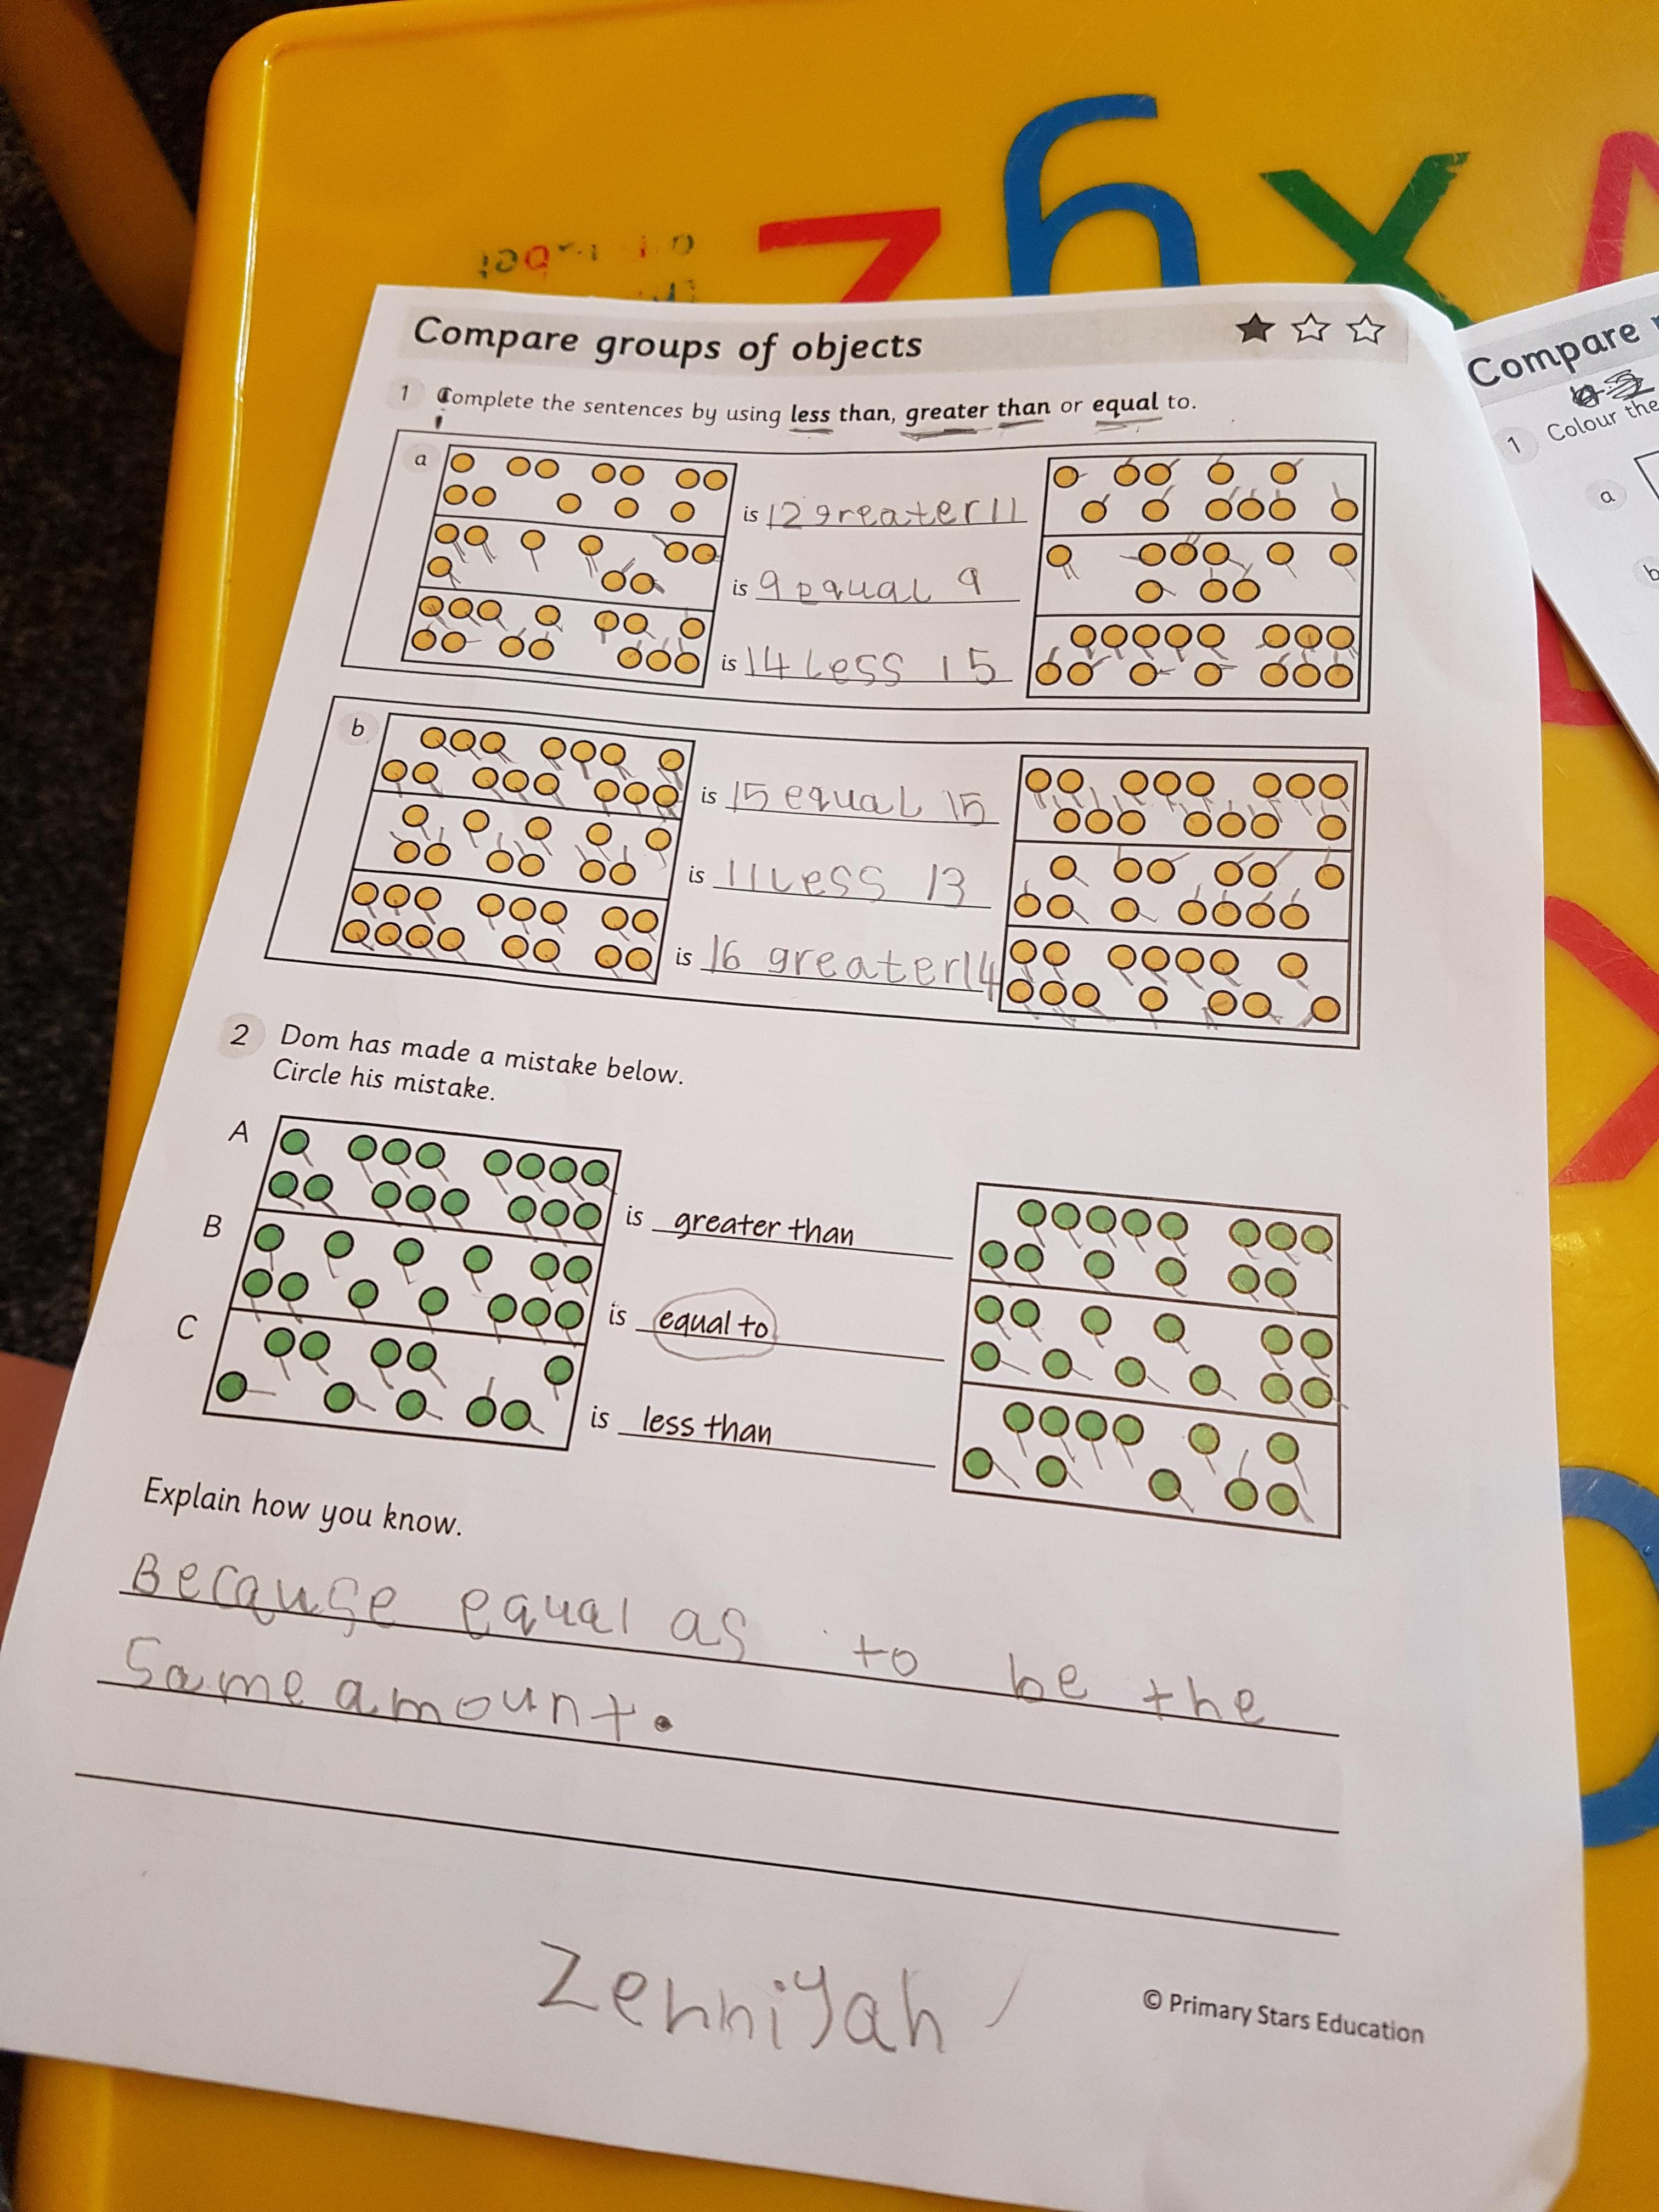 Compare groups of objects
1 Complete the sentences by using less than, greater than or equal to.
a
is 12 greater 11
is 9 equal 9
is 14 Less 15
b
is 15 equal 15
is 11 Less 13
is 16 greater 14
2 Dom has made a mistake below.
Circle his mistake.
A
is greater than
B
is equal to
C
is less than
Explain how you know.
Because equal as to be the
Same amount.
Zenniyah
© Primary Stars Education
Compare
1 Colour the
a
b
z 6 x